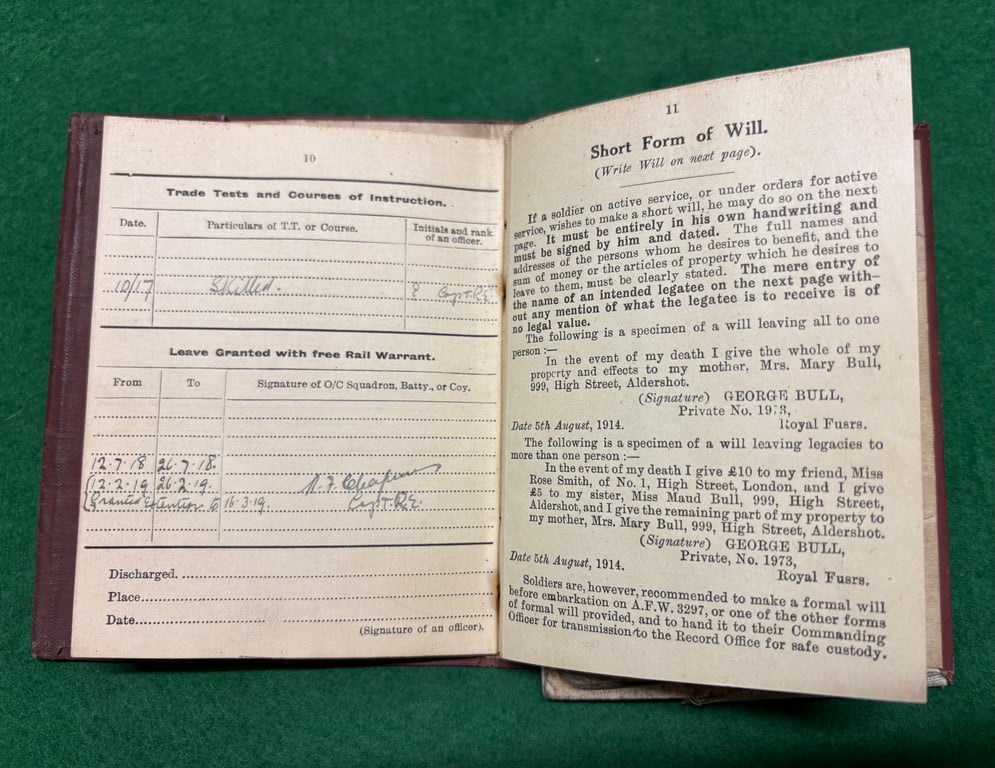 10
Trade Tests and Courses of Instruction.
Date.
Particulars of T.T. or Course.
Initials and rank
of an officer.
10/17
Skilled.
Capt. R.E.
Leave Granted with free Rail Warrant.
From
To
Signature of O/C Squadron, Batty., or Coy.
12.7.18 26.7.18.
12.2.19 26.2.19.
Granted Extention to 16.3.19.
Capt. R.E.
Discharged.
Place
Date
(Signature of an officer).
11
Short Form of Will.
(Write Will on next page).
If a soldier on active service, or under orders for active
service, wishes to make a short will, he may do so on the next
page. It must be entirely in his own handwriting and
must be signed by him and dated. The full names and
addresses of the persons whom he desires to benefit, and the
sum of money or the articles of property which he desires to
leave to them, must be clearly stated. The mere entry of
the name of an intended legatee on the next page with-
out any mention of what the legatee is to receive is of
no legal value.
The following is a specimen of a will leaving all to one
person :—
In the event of my death I give the whole of my
property and effects to my mother, Mrs. Mary Bull,
999, High Street, Aldershot.
(Signature) GEORGE BULL,
Private No. 1973,
Royal Fusrs.
Date 5th August, 1914.
The following is a specimen of a will leaving legacies to
more than one person :—
In the event of my death I give £10 to my friend, Miss
Rose Smith, of No. 1, High Street, London, and I give
£5 to my sister, Miss Maud Bull, 999, High Street,
Aldershot, and I give the remaining part of my property to
my mother, Mrs. Mary Bull, 999, High Street, Aldershot.
(Signature) GEORGE BULL,
Private, No. 1973,
Royal Fusrs.
Date 5th August, 1914.
Soldiers are, however, recommended to make a formal will
before embarkation on A.F.W. 3297, or one of the other forms
of formal will provided, and to hand it to their Commanding
Officer for transmission to the Record Office for safe custody.